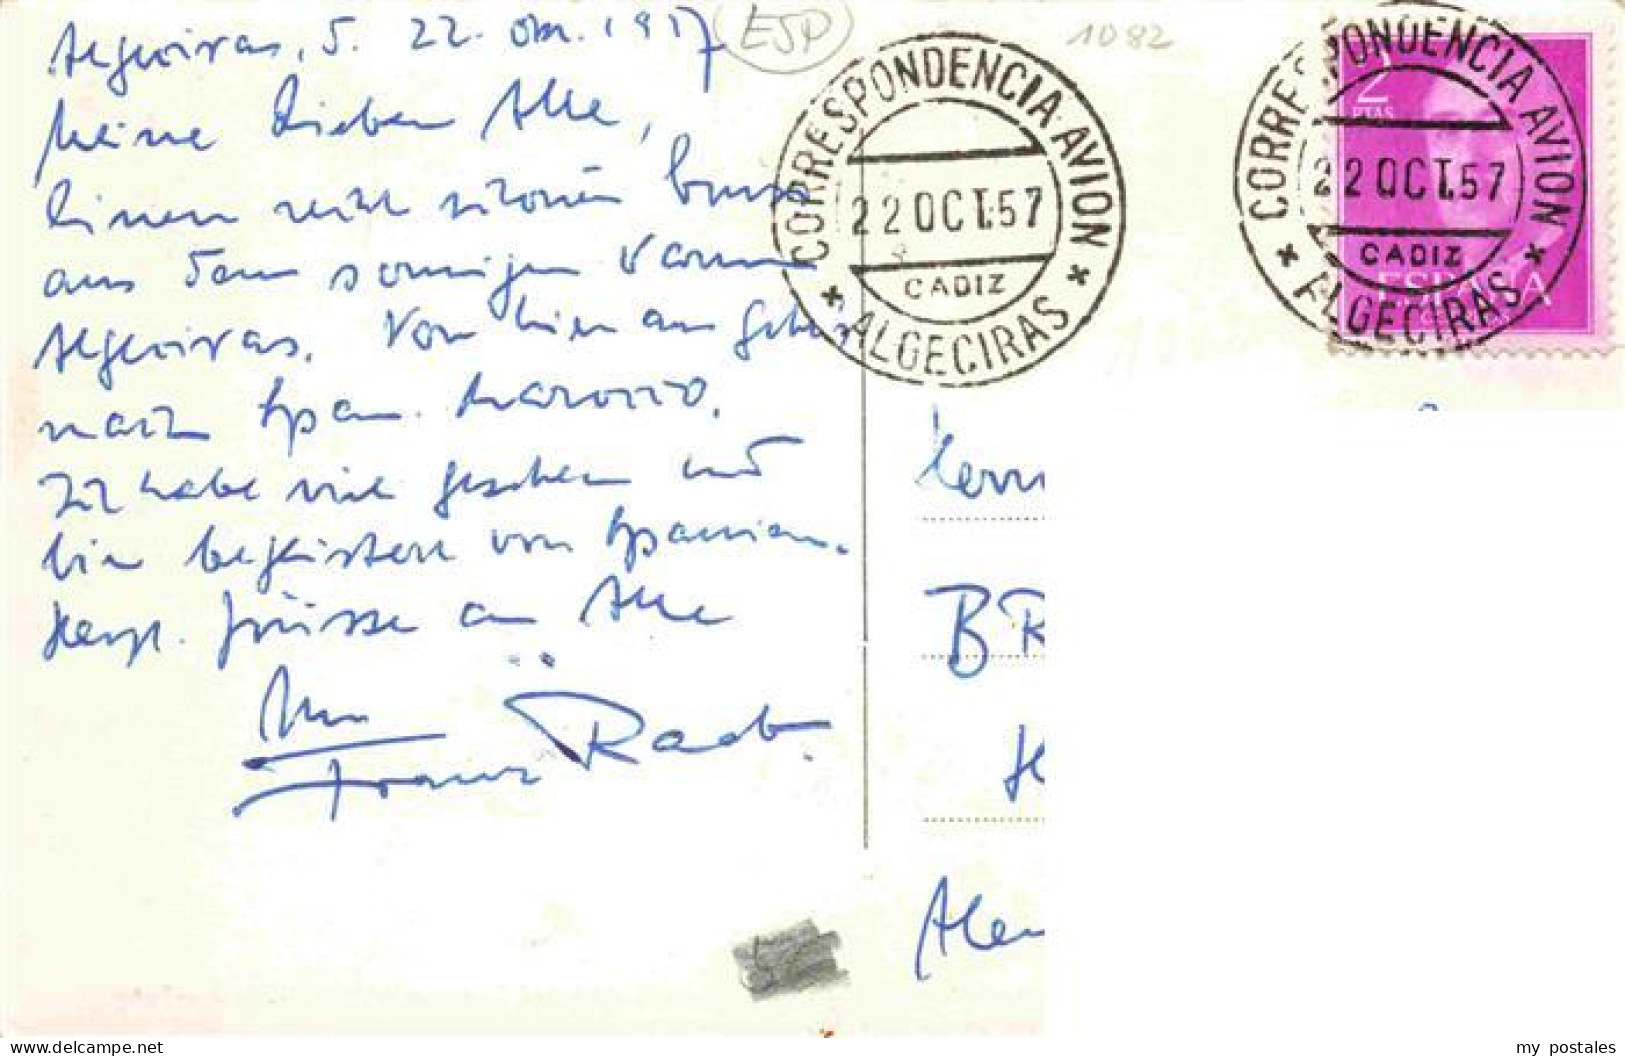 Algeciras, d. 22. Okt. 1957
Meine Lieben Alle,
Einen recht schönen Gruss
aus dem sonnigen warmen
Algeciras. Von hier aus gehts
nach Span. Marocco.
Ich habe viel gesehen und
bin begeistert von Spanien.
Herzl. Grüsse an Alle
Ihr
Franz Raab.
ESP
1082
CORRESPONDENCIA AVION
22 OCT.57
CADIZ
ALGECIRAS
CORRESPONDENCIA AVION
22 OCT.57
CADIZ
ALGECIRAS
2
PTAS
ESPAÑA
Herrn
BR
Alem
my postales
delcampe.net